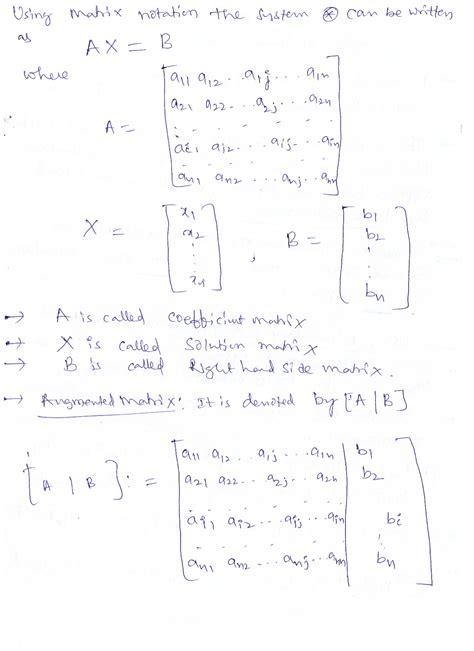 Using matrix notation the system ⊛ can be written
as AX = B
where
A = [ a11 a12 .. a1j ... a1n
a21 a22 ... a2j ... a2n
. . . . .
ai1 ai2 ... aij ... ain
. . . . .
an1 an2 ... anj ... ann ]
X = [ x1 x2 ⋮ xn ] , B = [ b1 b2 ⋮ bn ]
→ A is called coefficient matrix
→ X is called Solution matrix
→ B is called Right hand side matrix.
→ Augmented Matrix: It is denoted by [A | B]
[A | B] := [ a11 a12 .. a1j ... a1n | b1
a21 a22 ... a2j ... a2n | b2
ai1 ai2 ... aij ... ain | bi
⋮
an1 an2 ... anj ... ann | bn ]